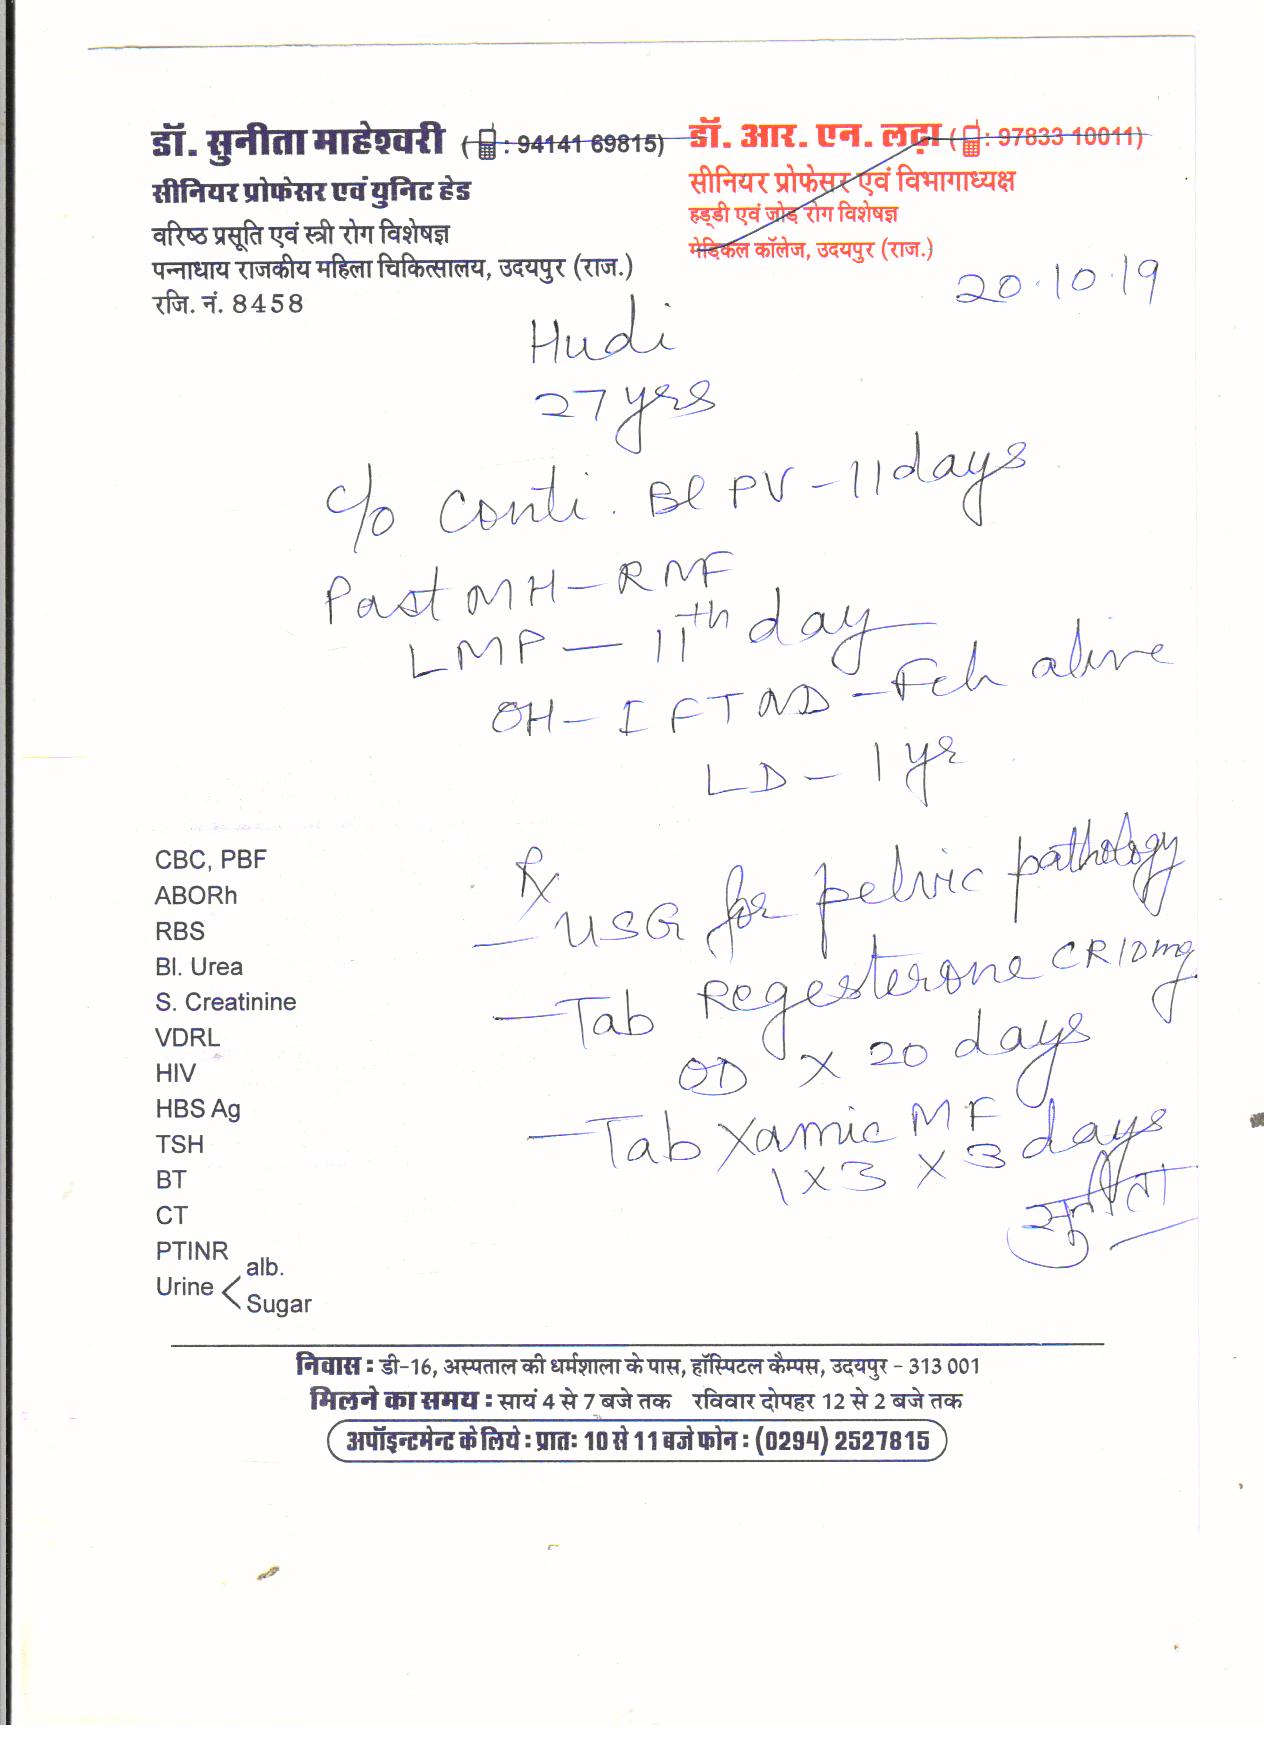 डॉ. सुनीता माहेश्वरी (: 94141 69815)
सीनियर प्रोफेसर एवं युनिट हेड
वरिष्ठ प्रसूति एवं स्त्री रोग विशेषज्ञ
पन्नाधाय राजकीय महिला चिकित्सालय, उदयपुर (राज.)
रजि. नं. 8458
डॉ. आर. एन. लढ़ा (: 97833 10011)
सीनियर प्रोफेसर एवं विभागाध्यक्ष
हड्डी एवं जोड़ रोग विशेषज्ञ
मेडिकल कॉलेज, उदयपुर (राज.)
20.10.19
Hudi
27 yrs
c/o Conti. Bl PV - 11 days
Past MH - RMF
LMP - 11th day
OH - I FTND - Fch alive
LD - 1 yr
Rx
- USG for pelvic pathology
- Tab Regesterone CR 10mg
OD x 20 days
- Tab Xamic MF
1 x 3 x 3 days
सुनीता
CBC, PBF
ABORh
RBS
Bl. Urea
S. Creatinine
VDRL
HIV
HBS Ag
TSH
BT
CT
PTINR
Urine < alb.
Sugar
निवास : डी-16, अस्पताल की धर्मशाला के पास, हॉस्पिटल कैम्पस, उदयपुर - 313 001
मिलने का समय : सायं 4 से 7 बजे तक रविवार दोपहर 12 से 2 बजे तक
अपॉइन्टमेन्ट के लिये : प्रातः 10 से 11 बजे फोन : (0294) 2527815